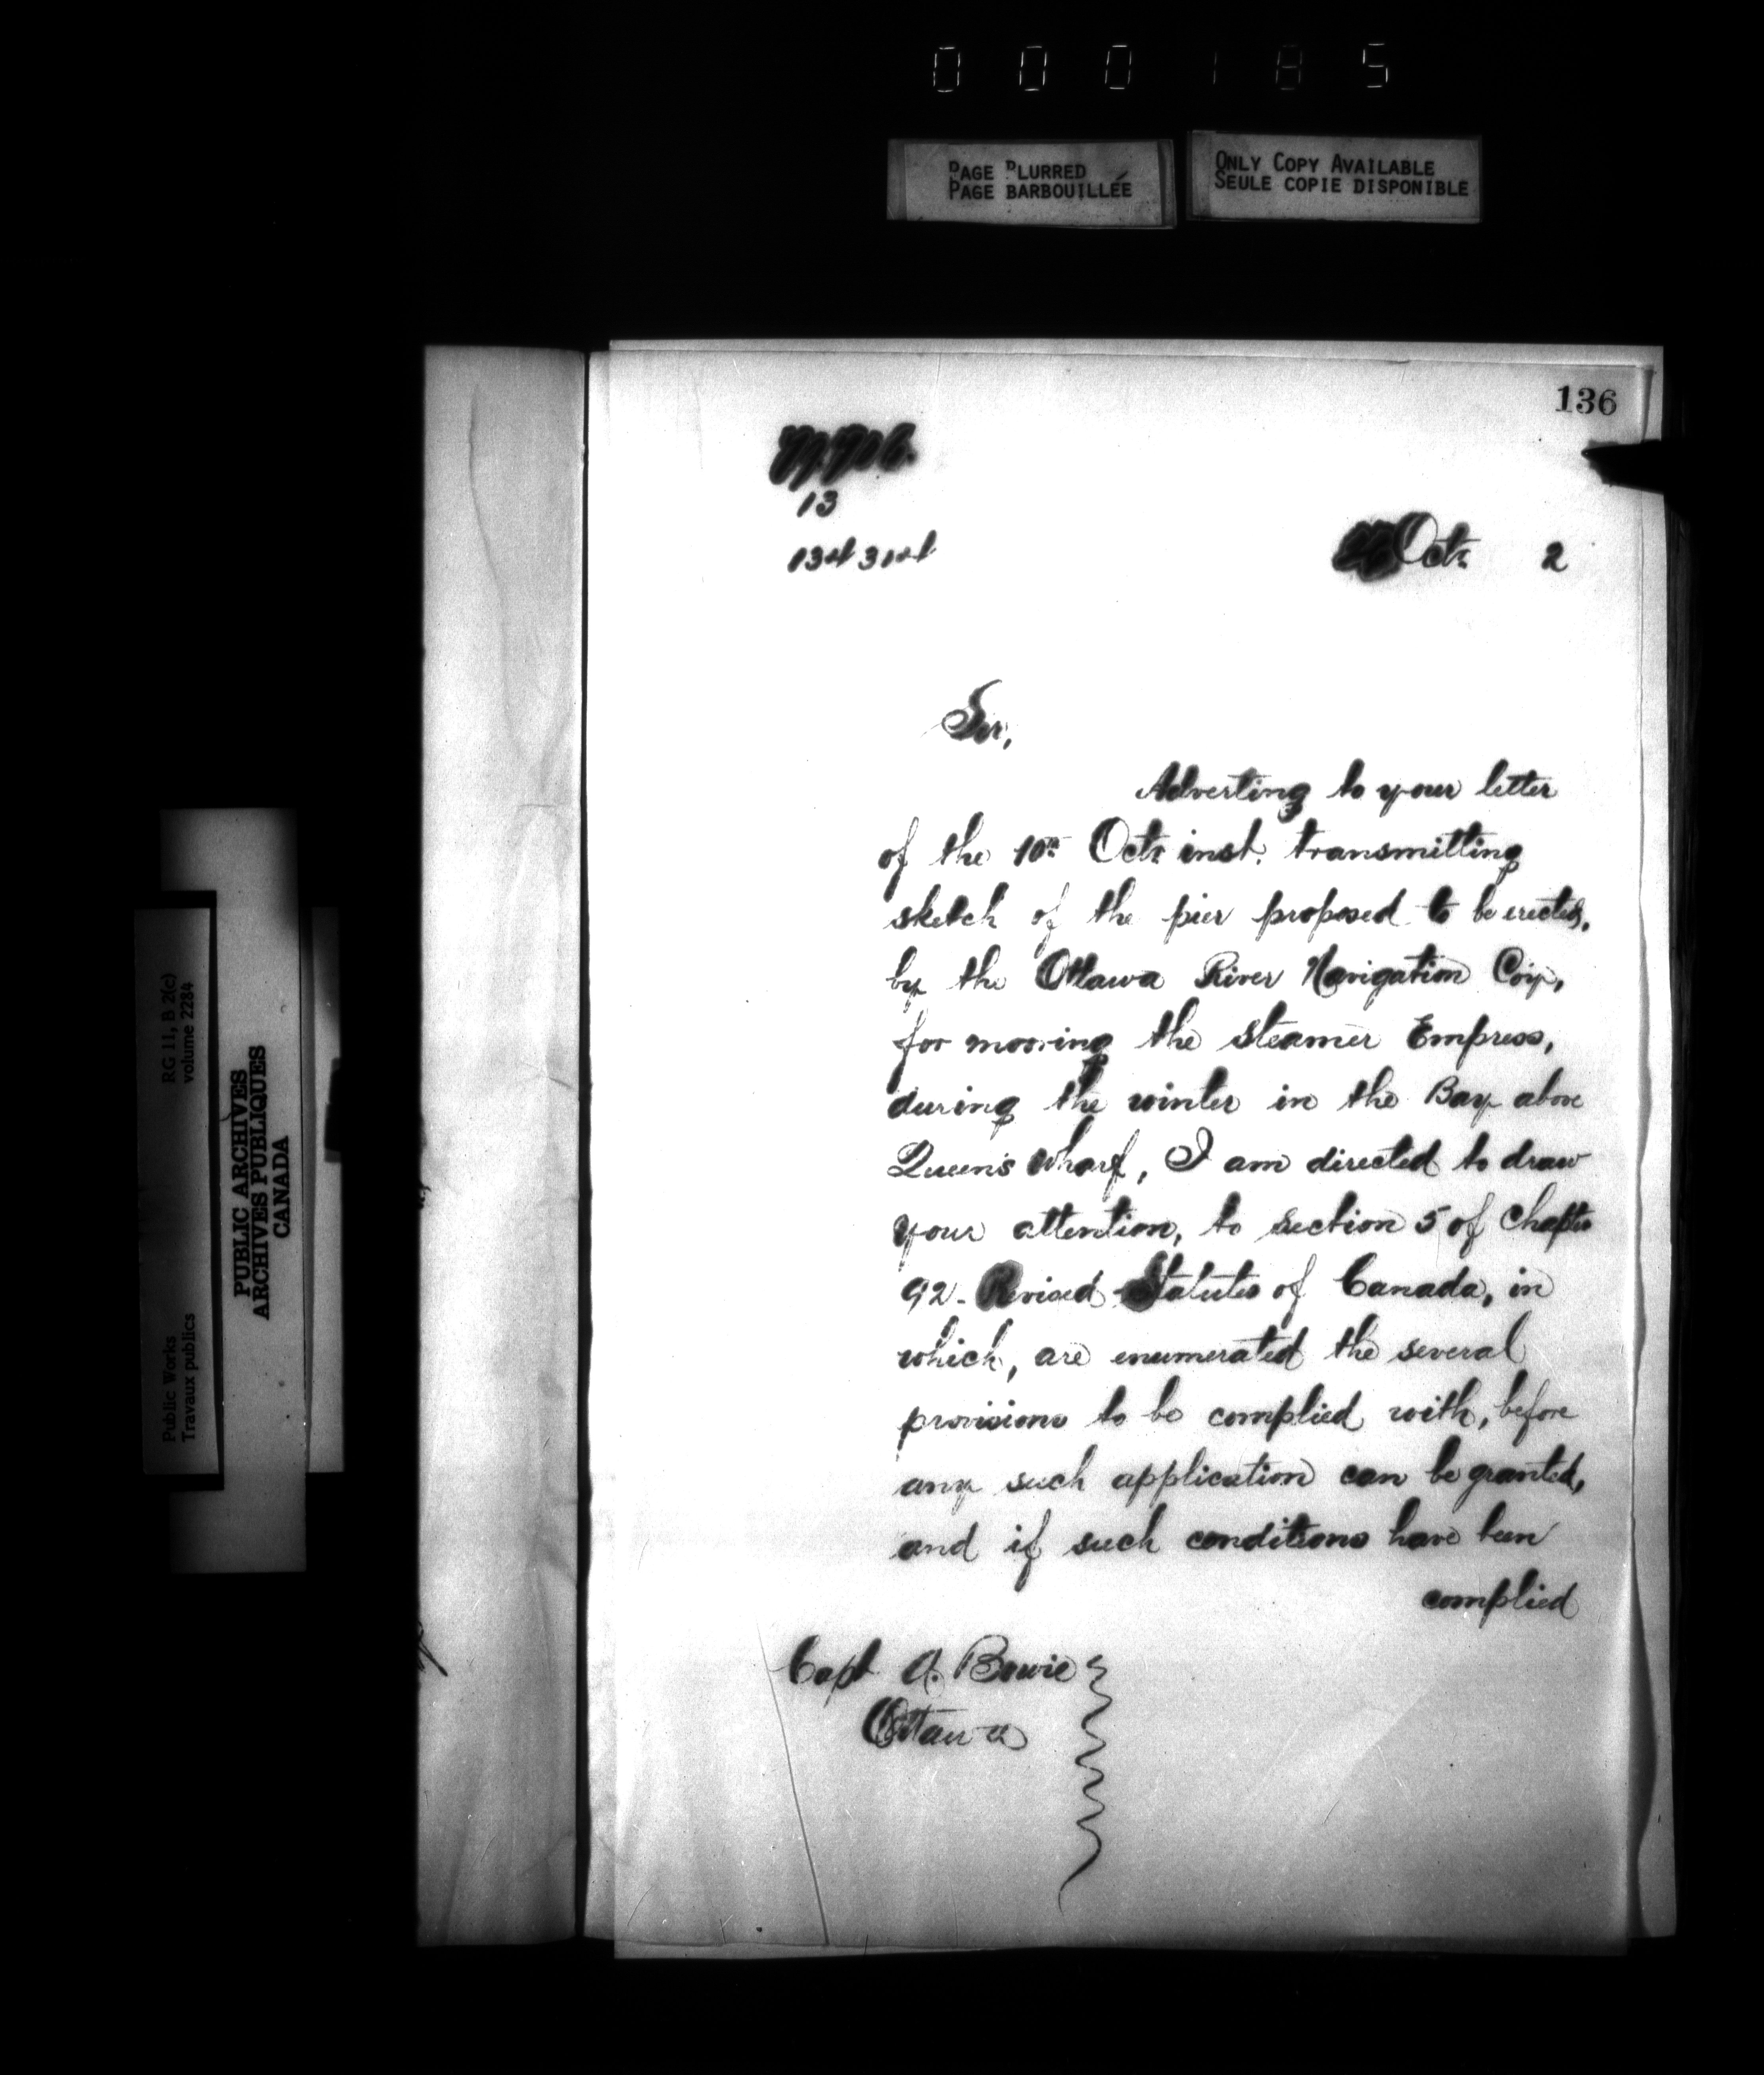 000185
PAGE BLURRED
PAGE BARBOUILLÉE
ONLY COPY AVAILABLE
SEULE COPIE DISPONIBLE
136
13
Octr 2
Sir,
Adverting to your letter
of the 10th Octr inst. transmitting
sketch of the pier proposed to be erected,
by the Ottawa River Navigation Coy,
for mooring the steamer Empress,
during the winter in the Bay above
Queen's Wharf, I am directed to draw
your attention, to section 5 of Chapter
92 - Revised Statutes of Canada, in
which, are enumerated the several
provisions to be complied with, before
any such application can be granted,
and if such conditions have been
complied
Capt A. Bowie
Ottawa
RG 11, B 2(c)
volume 2284
Public Works
Travaux publics
PUBLIC ARCHIVES
ARCHIVES PUBLIQUES
CANADA